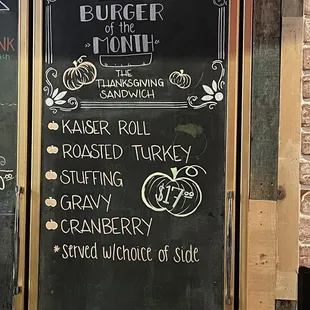 BURGER
of the
"MONTH"
THE
THANKSGIVING
SANDWICH
KAISER ROLL
ROASTED TURKEY
STUFFING
$17.00
GRAVY
CRANBERRY
*served w/choice of side
NK